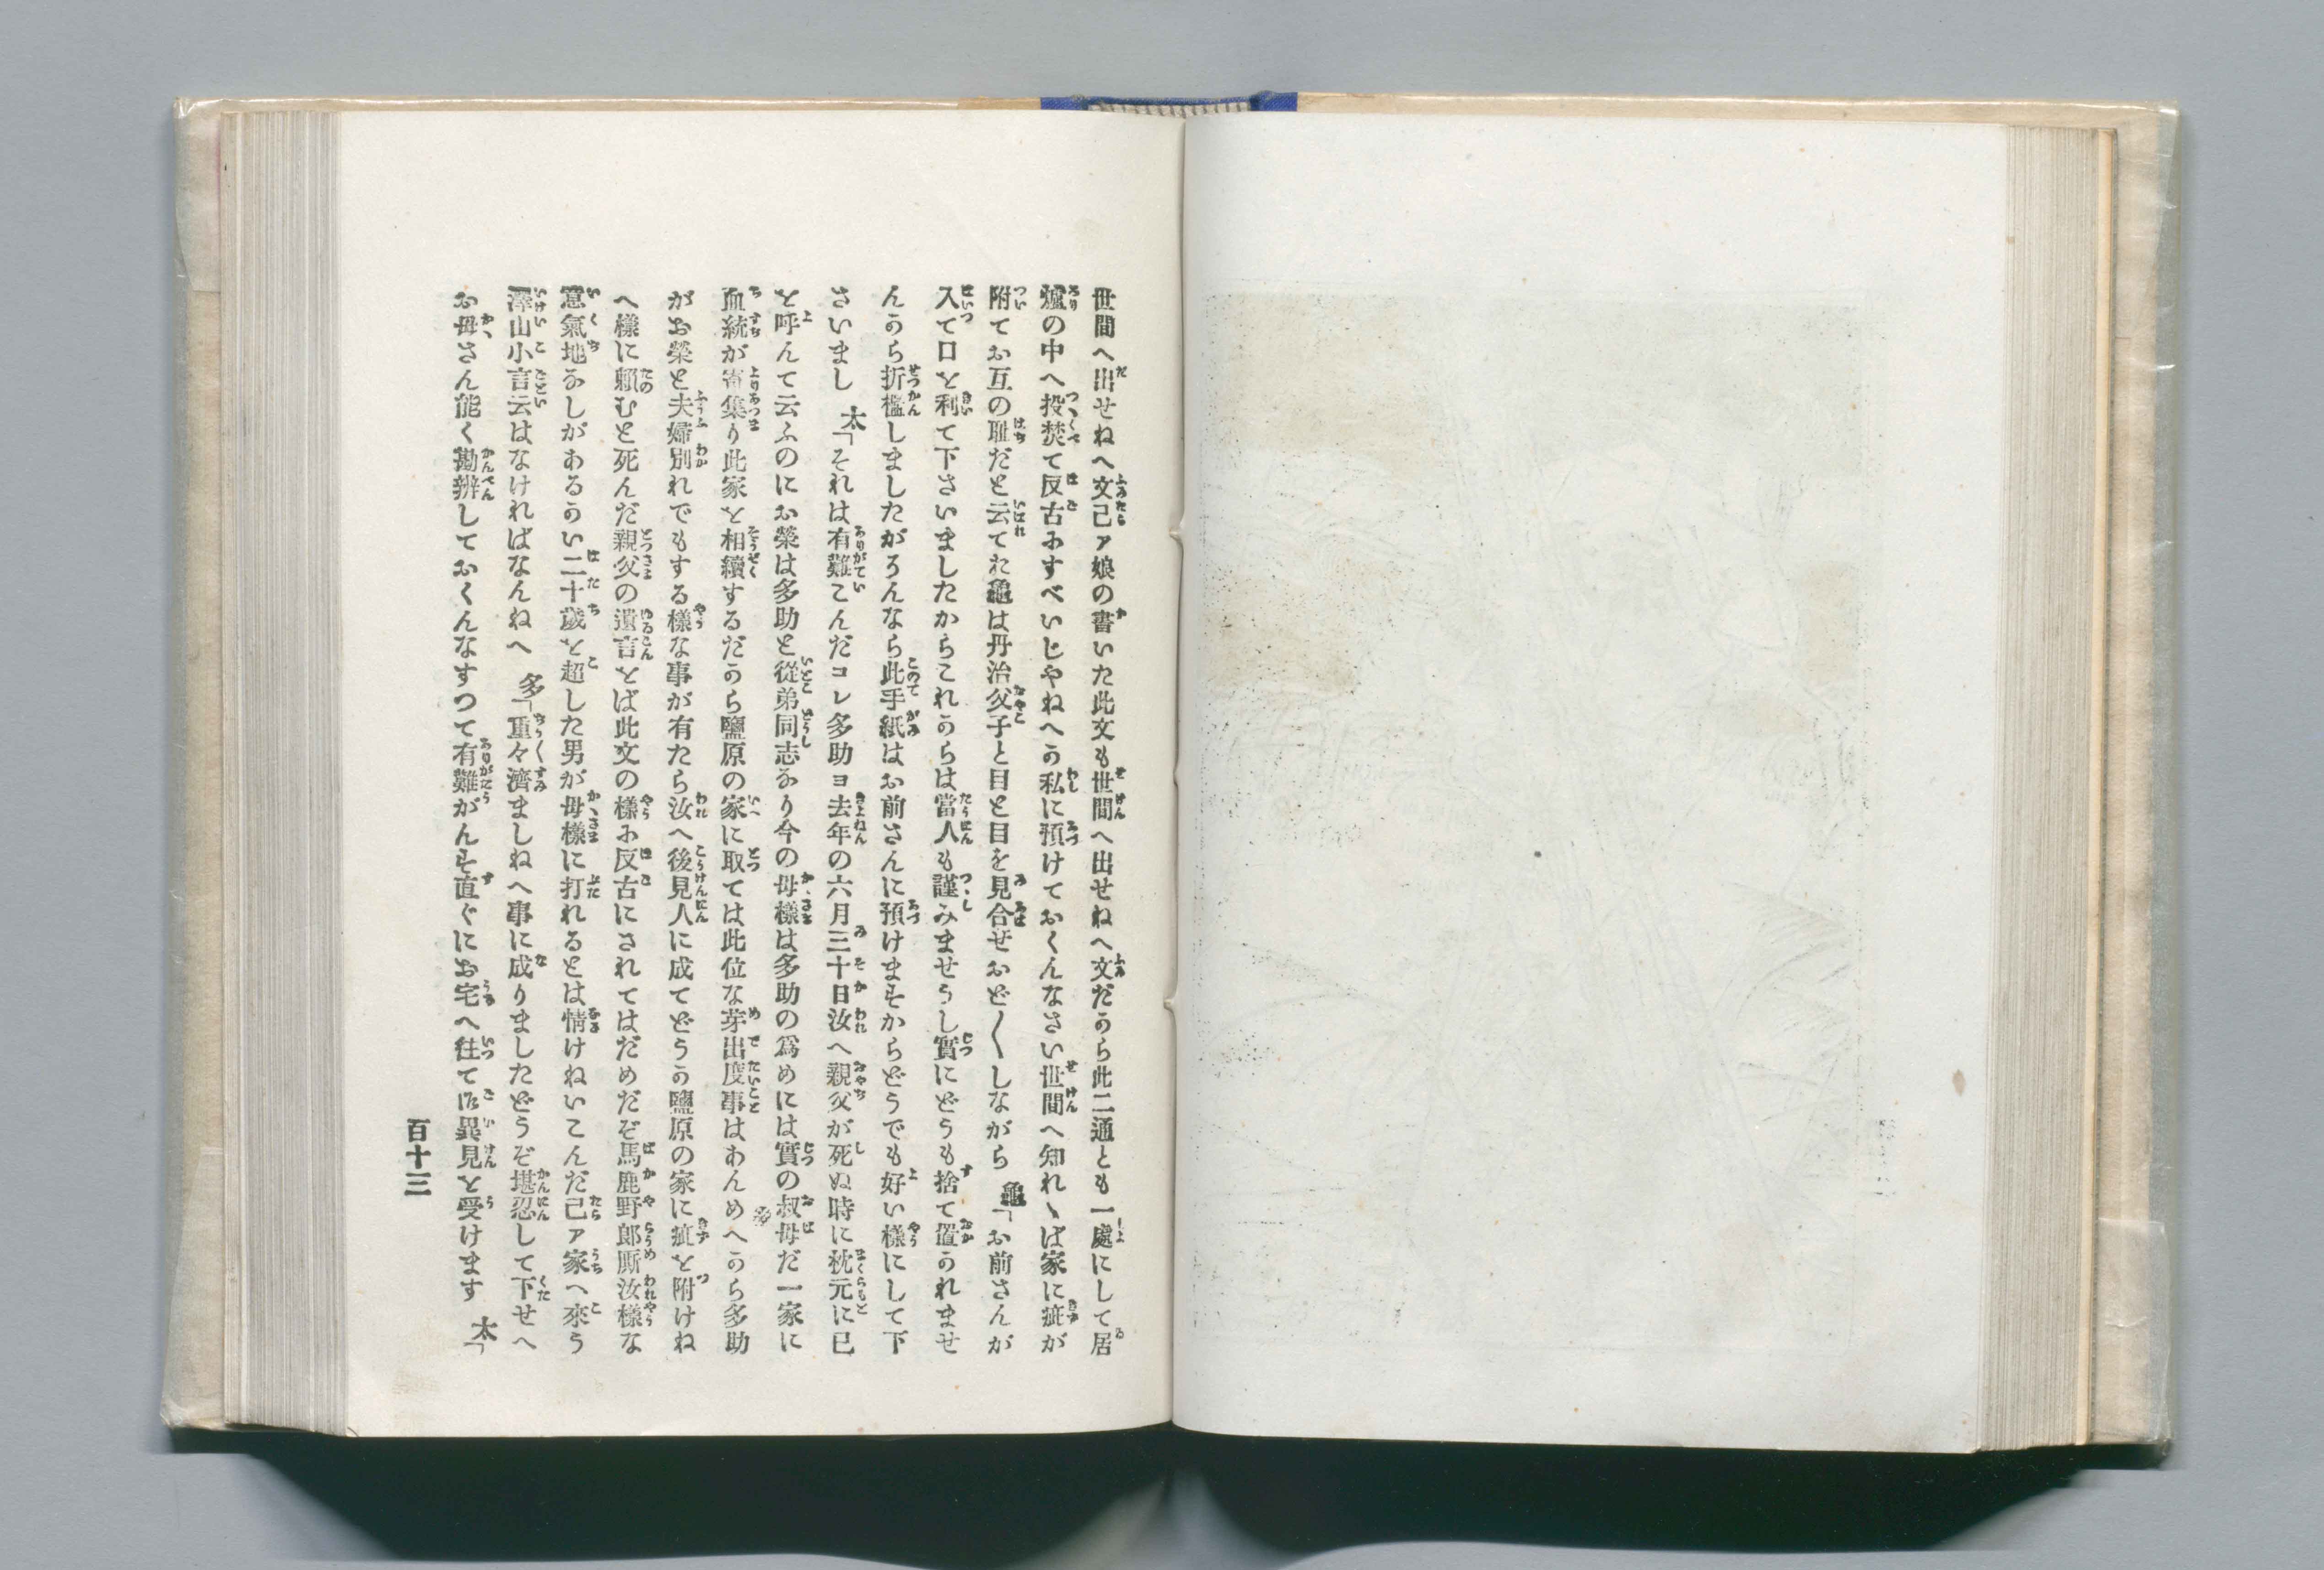 世間へ出せねへ文己ァ娘の書いた此文も世間へ出せねへ文だから此二通とも一處にして居
爐の中へ投焚て反古にすべいじやねへか私に預けておくんなさい世間へ知れゝば家に疵が
附てお互の耻だと云てた龜は丹治父子と目と目を見合せおど〱しながら 龜「お前さんが
入て口を利て下さいましたからこれからは當人も謹みませうし實にどうも捨て置かれませ
んから折檻しましたがろんなら此手紙はお前さんに預けますからどうでも好い樣にして下
さいまし 太「それは有難こんだコレ多助ヨ去年の六月三十日汝へ親父が死ぬ時に枕元に已
を呼んて云ふのにお榮は多助と從弟同志なり今の母樣は多助の爲めには實の叔母だ一家に
血統が寄集り此家を相續するだから鹽原の家に取ては此位な芽出度事はあんめへから多助
がお榮と夫婦別れでもする樣な事が有たら汝へ後見人に成てどうか鹽原の家に疵を附けね
へ樣に頼むと死んだ親父の遺言をば此文の樣に反古にされてはだめだぞ馬鹿野郎厮汝樣な
意氣地なしがあるかい二十歲を超した男が母樣に打れるとは情けねいこんだ己ァ家へ來う
澤山小言云はなければなんねへ 多「重々濟ましねへ事に成りましたどうぞ堪忍して下せへ
お母さん能く勘辨しておくんなすつて有難がんす直ぐにお宅へ往て御異見を受けます 太「
百十三